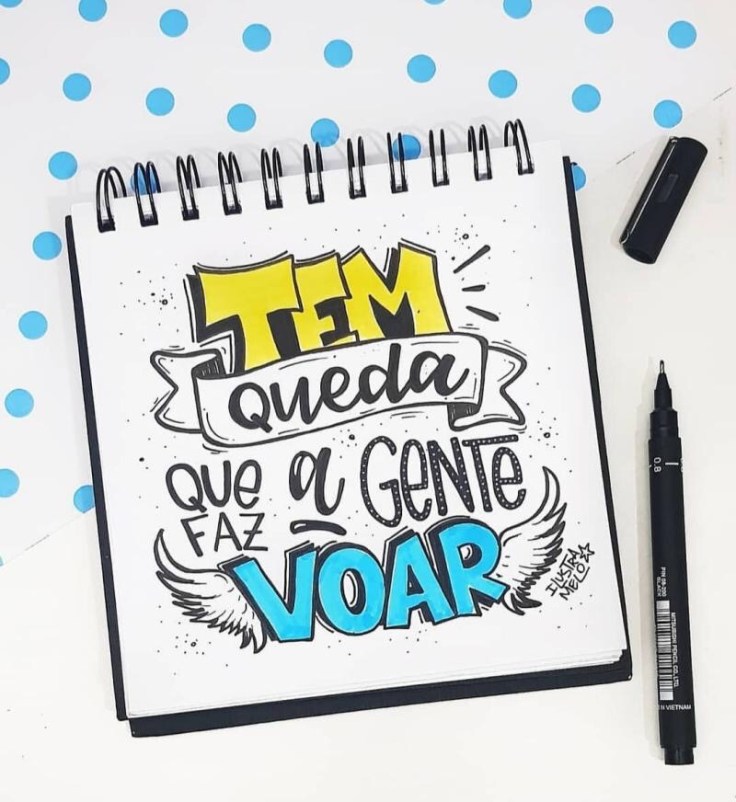 TEM
QUEDA
QUE a GENTE
FAZ
VOAR
ILUSTRA
MELO
0.8
PIN 08-200
BLACK
MITSUBISHI PENCIL CO., LTD
IN VIETNAM